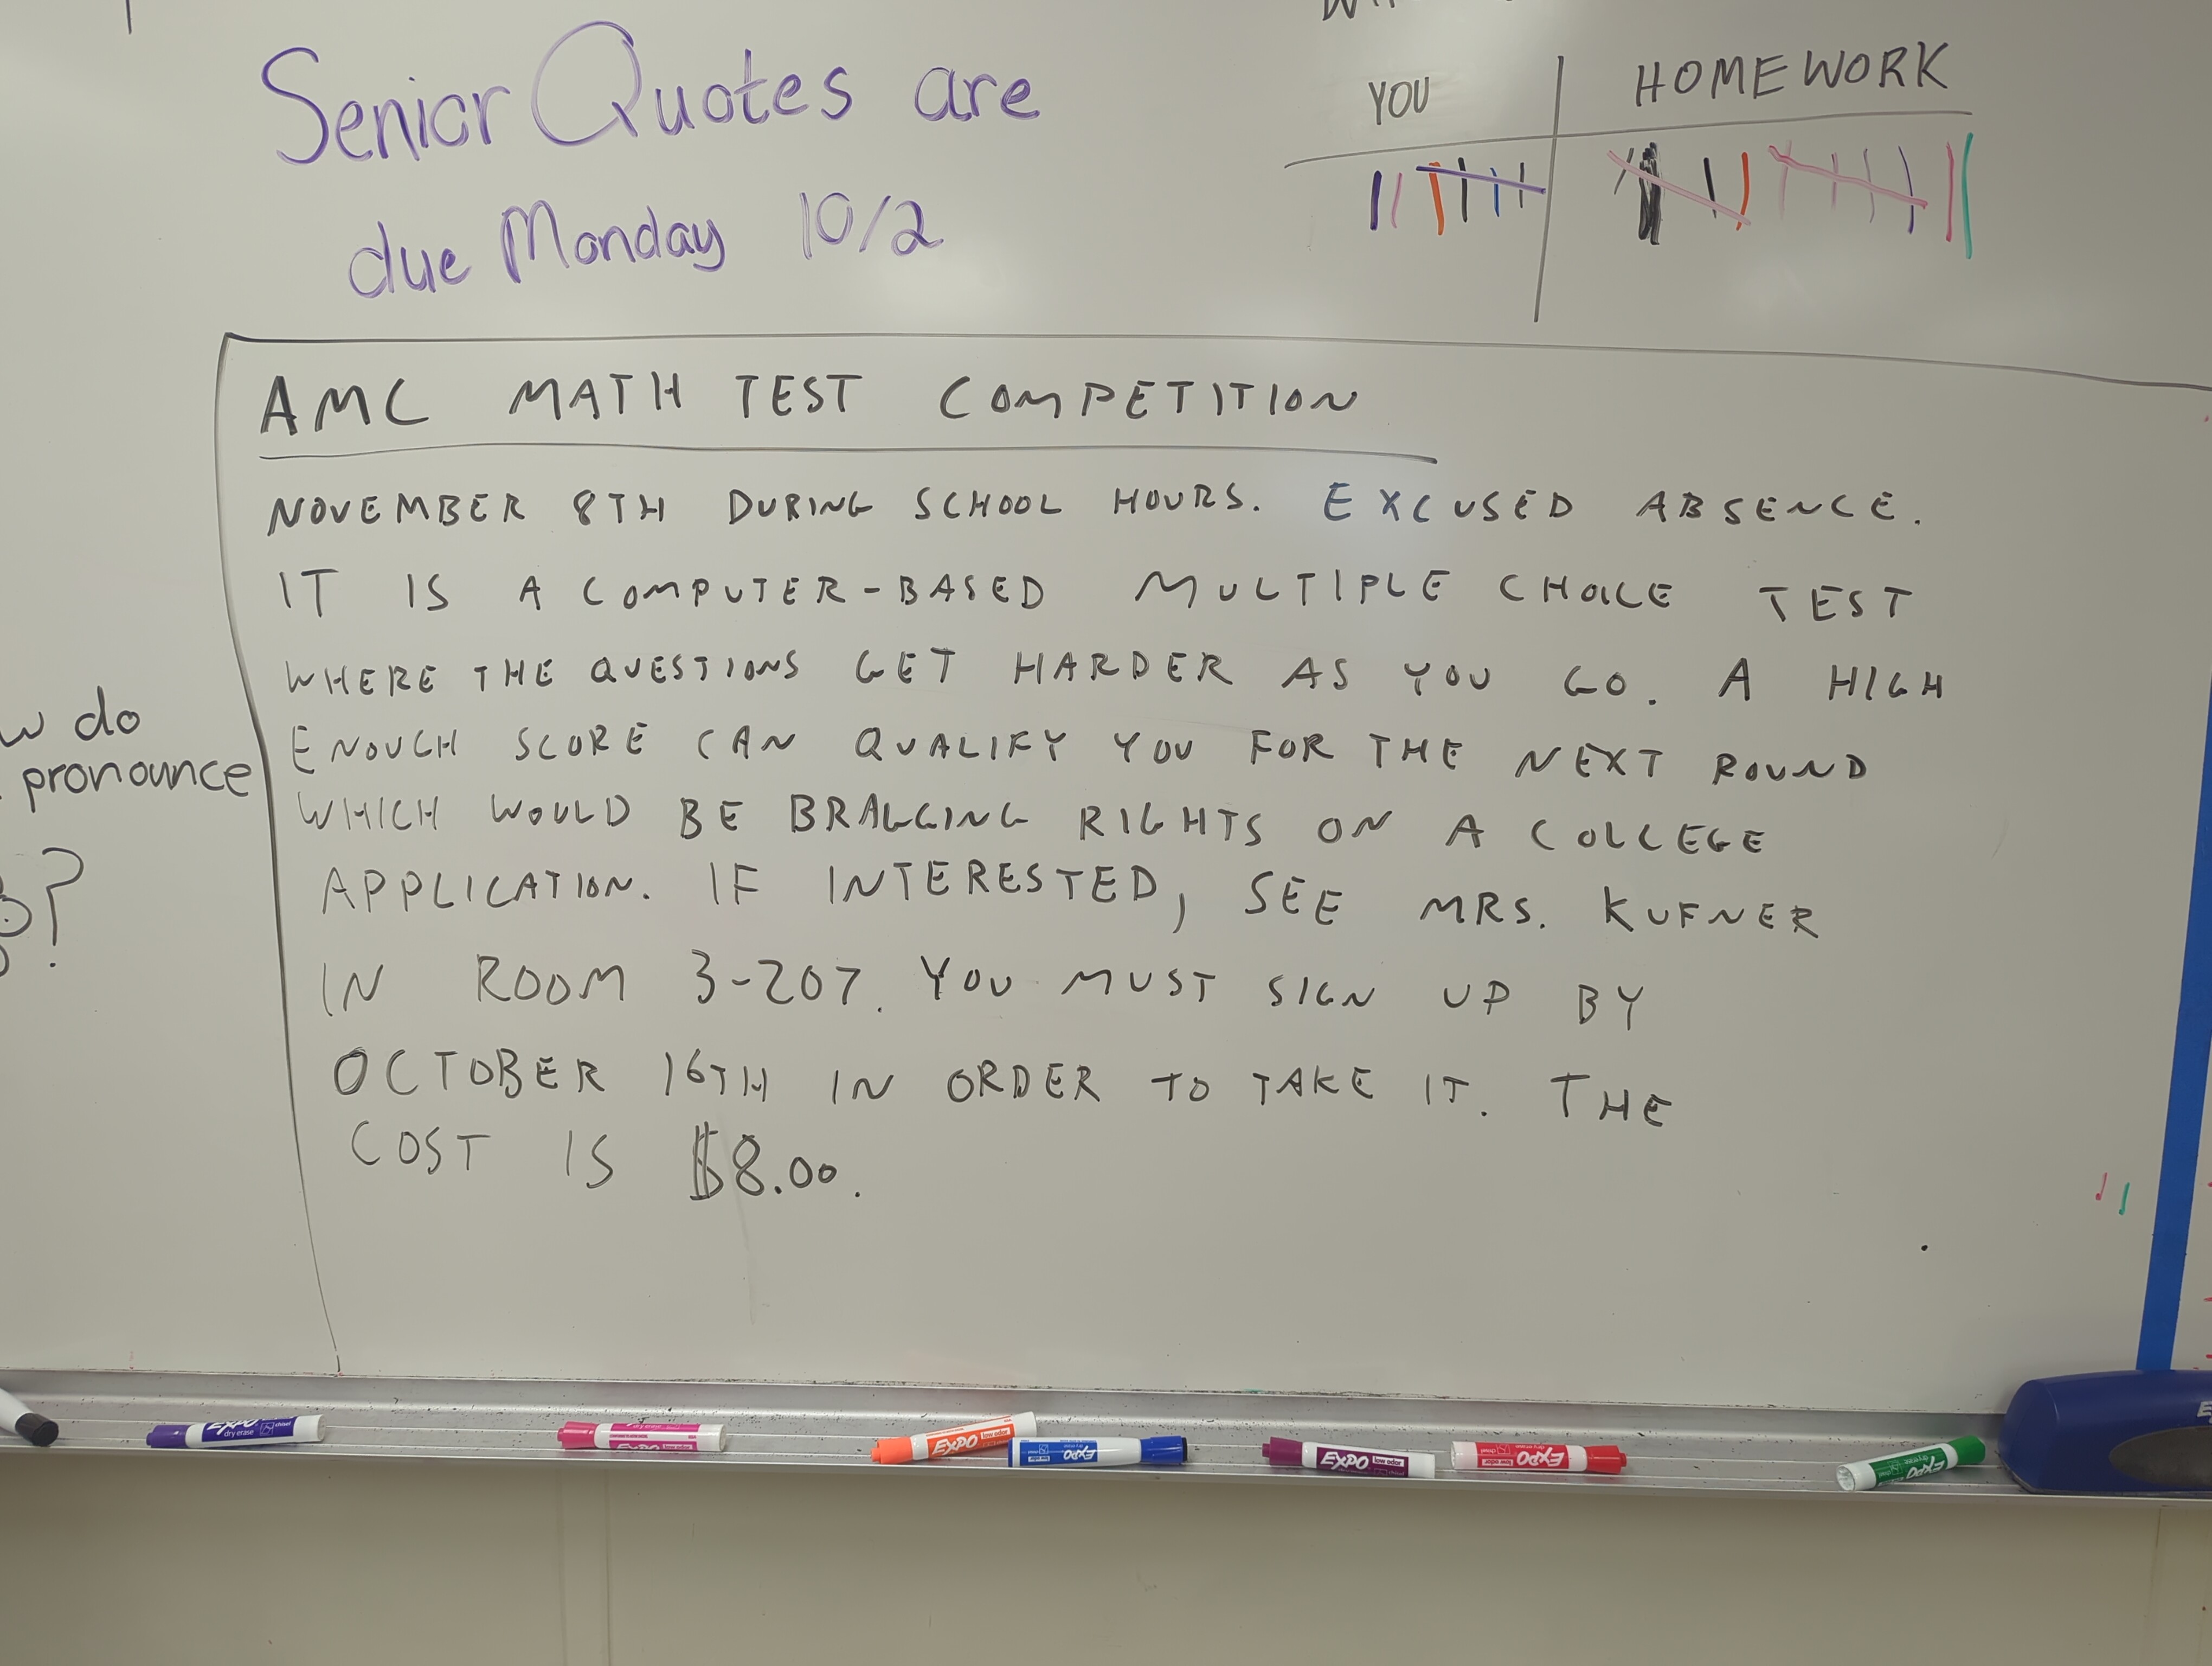 Senior Quotes are
due Monday 10/2
YOU
HOMEWORK
AMC MATH TEST COMPETITION
NOVEMBER 8TH DURING SCHOOL HOURS. EXCUSED ABSENCE.
IT IS A COMPUTER-BASED MULTIPLE CHOICE TEST
WHERE THE QUESTIONS GET HARDER AS YOU GO. A HIGH
ENOUGH SCORE CAN QUALIFY YOU FOR THE NEXT ROUND
WHICH WOULD BE BRAGGING RIGHTS ON A COLLEGE
APPLICATION. IF INTERESTED, SEE MRS. KUFNER
IN ROOM 3-207. YOU MUST SIGN UP BY
OCTOBER 16TH IN ORDER TO TAKE IT. THE
COST IS $8.00.
do
pronounce
?
EXPO
dry erase
EXPO low odor
EXPO low odor
EXPO
EXPO low odor
EXPO
EXPO